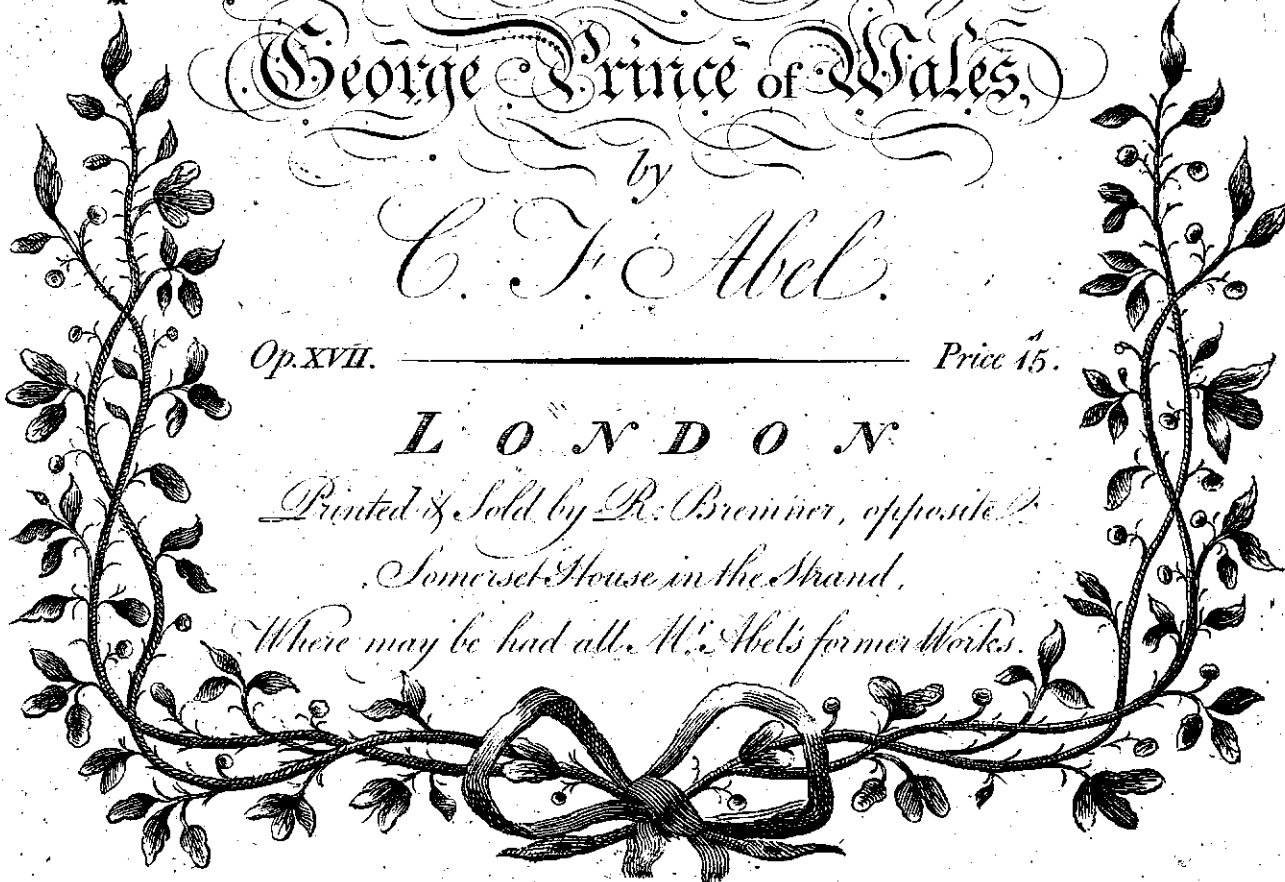 George Prince of Wales,
by
C. F. Abel.
Op. XVII. Price 15.
LONDON
Printed & Sold by R. Bremner, opposite
Somerset House in the Strand,
Where may be had all Mr. Abel's former Works.